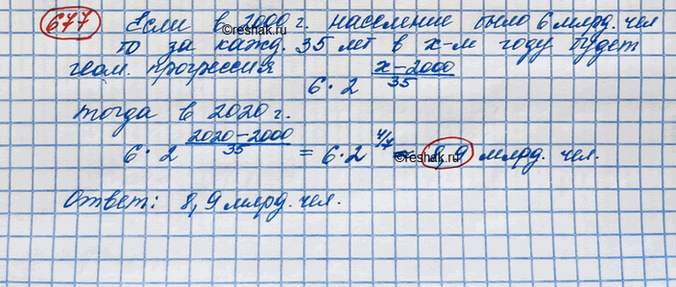 677 Если в 2000 г. население было 6 млрд. чел
то за кажд. 35 лет в х-м году будет
геом. прогрессия 6·2^(х-2000)/35
тогда в 2020 г.
6·2^(2020-2000)/35 = 6·2^4/7 ≈ 8,9 млрд. чел.
Ответ: 8,9 млрд. чел.
©reshak.ru
©reshak.ru